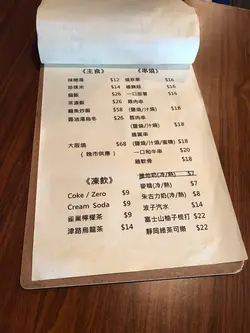 《主食》
味噌湯 $12
珍珠米 $14
$26
茶漬飯 $26
鰻魚炒飯 $58
醬油湯烏冬 $26
大阪燒 $68
( 晚市供應 )
《串燒》
燒京蔥 $16
$16
一口甜薯 $16
雞肉串
(鹽燒/汁燒) $18
豚肉串
(鹽燒/汁燒) $18
雞翼串
(鹽燒/汁燒/蜜糖) $18
一口和牛串 $20
雞軟骨 $18
《凍飲》
Coke / Zero $9
Cream Soda $9
雀巢檸檬茶 $9
津路烏龍茶 $14
維他奶(冷/熱) $7
麥精(冷/熱) $7
朱古力奶(冷/熱)
波子汽水 $14
富士山柚子梳打 $22
靜岡綠茶可樂 $22